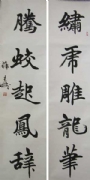 繡虎雕龍筆
騰蛟起鳳辭